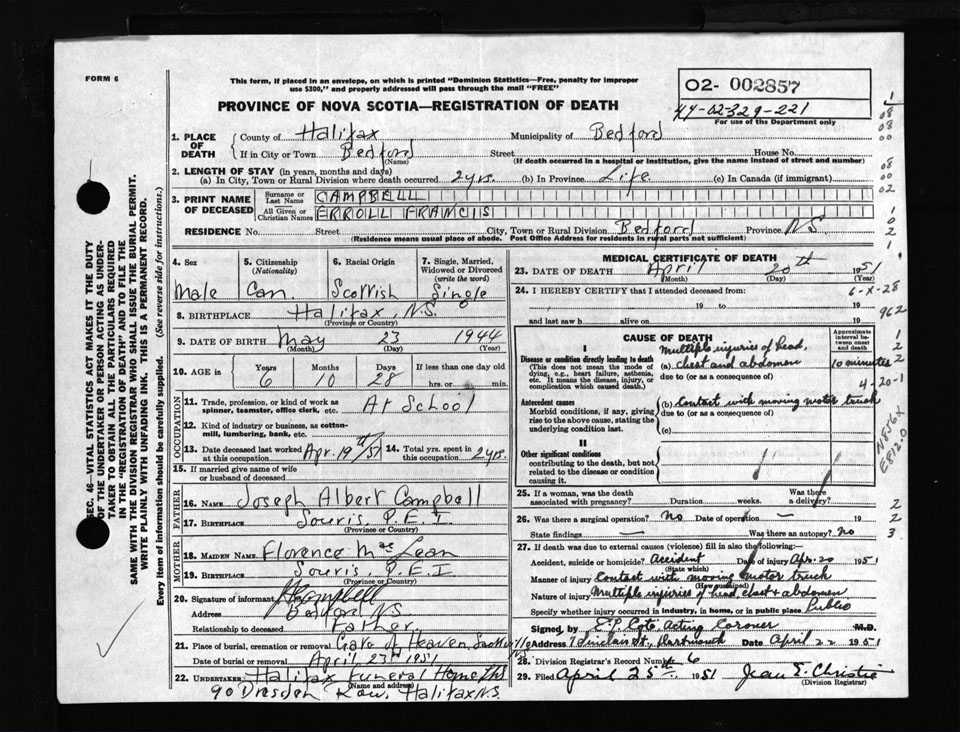 FORM 6
This form, if placed in an envelope, on which is printed "Dominion Statistics—Free, penalty for improper
use $300," and properly addressed will pass through the mail "FREE"
PROVINCE OF NOVA SCOTIA—REGISTRATION OF DEATH
02- 002857
44-02-329-221
For use of the Department only
1. PLACE OF DEATH
County of Halifax Municipality of Bedford
If in City or Town Bedford Street House No.
(Name) (If death occurred in a hospital or institution, give the name instead of street and number)
2. LENGTH OF STAY (in years, months and days)
(a) In City, Town or Rural Division where death occurred 2 yrs. (b) In Province Life (c) In Canada (if immigrant)
3. PRINT NAME OF DECEASED
Surname or Last Name CAMPBELL
All Given or Christian Names ERROLL FRANCIS
RESIDENCE No. Street City, Town or Rural Division Bedford Province NS
(Residence means usual place of abode. Post Office Address for residents in rural parts not sufficient)
SEC. 46—VITAL STATISTICS ACT MAKES IT THE DUTY
OF THE UNDERTAKER OR PERSON ACTING AS UNDER-
TAKER TO OBTAIN ALL THE PARTICULARS REQUIRED
IN THE "REGISTRATION OF DEATH" AND TO FILE THE
SAME WITH THE DIVISION REGISTRAR WHO SHALL ISSUE THE BURIAL PERMIT.
WRITE PLAINLY WITH UNFADING INK. THIS IS A PERMANENT RECORD.
Every item of information should be carefully supplied. (See reverse side for instructions.)
4. Sex 5. Citizenship (Nationality) 6. Racial Origin 7. Single, Married, Widowed or Divorced (write the word)
Male Can. Scottish Single
8. BIRTHPLACE Halifax, N.S.
(Province or Country)
9. DATE OF BIRTH May 23 1944
(Month) (Day) (Year)
10. AGE in Years Months Days If less than one day old
6 10 28 hrs. or min.
OCCUPATION
11. Trade, profession, or kind of work as
spinner, teamster, office clerk, etc. At School
12. Kind of industry or business, as cotton-
mill, lumbering, bank, etc.
13. Date deceased last worked at this occupation Apr. 19th/51 14. Total yrs. spent in this occupation 2 yrs.
15. If married give name of wife
or husband of deceased
FATHER
16. NAME Joseph Albert Campbell
17. BIRTHPLACE Souris, P.E.I
(Province or Country)
MOTHER
18. MAIDEN NAME Florence MacLean
19. BIRTHPLACE Souris, P.E.I
(Province or Country)
20. Signature of informant Campbell
Address Bedford N.S
Relationship to deceased Father
21. Place of burial, cremation or removal Gate of Heaven, Sackville N.S.
Date of burial or removal April 23rd 1951
22. UNDERTAKER Halifax Funeral Home Ltd
(Name and address)
90 Dresden Row, Halifax N.S.
MEDICAL CERTIFICATE OF DEATH
23. DATE OF DEATH April 20th 1951
(Month) (Day) (Year)
24. I HEREBY CERTIFY that I attended deceased from:
6-X-28
19 to 19
962
and last saw h alive on 19
CAUSE OF DEATH
Approximate interval between onset and death
I
Disease or condition directly leading to death
(This does not mean the mode of
dying, e.g., heart failure, asthenia,
etc. It means the disease, injury, or
complication which caused death.)
Multiple injuries of head,
(a) chest and abdomen 10 minutes
due to (or as a consequence of)
4-20-1
Antecedent causes
Morbid conditions, if any, giving
rise to the above cause, stating the
underlying condition last.
(b) Contact with moving motor truck
due to (or as a consequence of)
(c)
N856X
E8120
II
Other significant conditions
contributing to the death, but not
related to the disease or condition
causing it.
25. If a woman, was the death associated with pregnancy? Duration weeks. Was there a delivery?
26. Was there a surgical operation? No Date of operation — 19
State findings — Was there an autopsy? No
27. If death was due to external causes (violence) fill in also the following:—
Accident, suicide or homicide? Accident Date of injury Apr. 20 1951
(State which)
Manner of injury Contact with moving motor truck
(How sustained)
Nature of injury Multiple injuries of head, chest & abdomen
Specify whether injury occurred in industry, in home, or in public place Public
Signed by E.P. Cote, Acting Coroner M.D.
Address Sinclair St., Dartmouth Date April 22 1951
28. Division Registrar's Record Number 6
29. Filed April 25th 1951 Jean E. Christie
(Division Registrar)